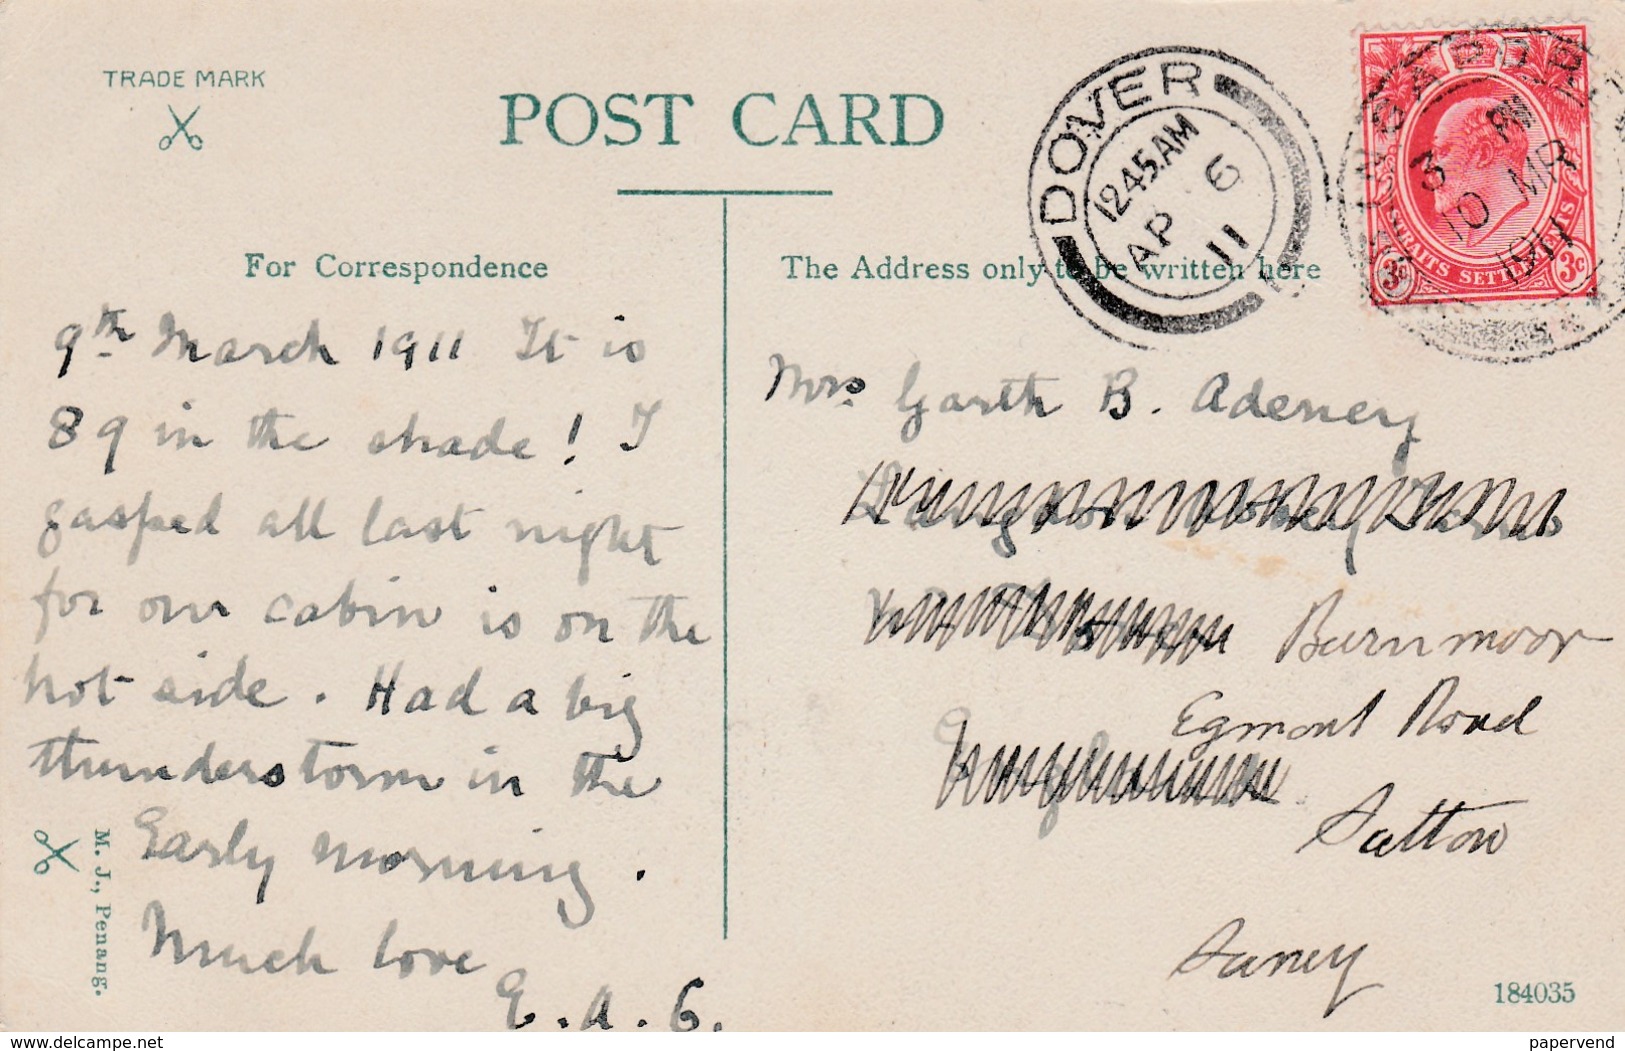 TRADE MARK
POST CARD
For Correspondence
The Address only to be written here
DOVER
12.45.AM
AP 6
11
SINGAPORE
3 PM
10 MR
1911
STRAITS SETTLEMENTS
3c 3c
9th March 1911 It is
89 in the shade! I
gasped all last night
for our cabin is on the
hot side. Had a big
thunderstorm in the
Early morning.
Much love
E.A.G.
Mrs. Garth B. Adeney
Burnmoor
Egmont Road
Sutton
Surrey
M. J., Penang.
184035
www.delcampe.net
papervend